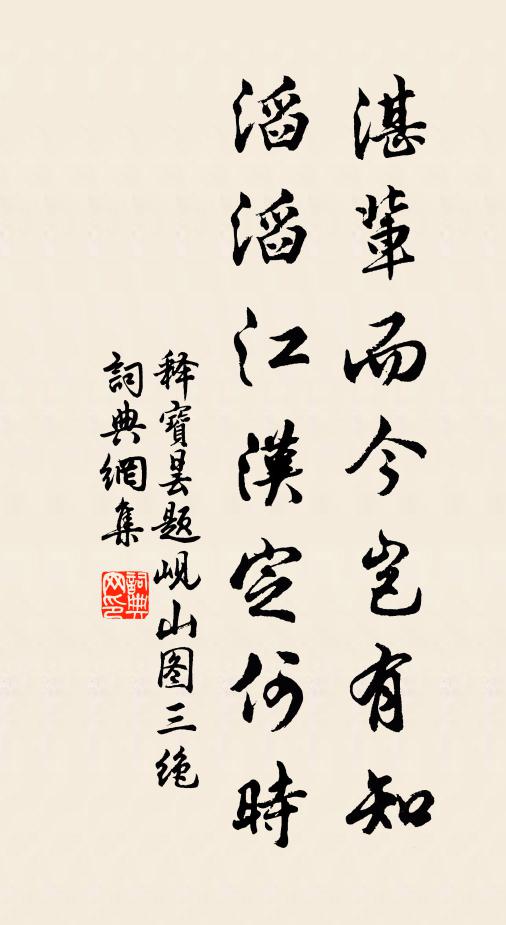 湛輩而今岂有知
滔滔江漢定何時
释寶昙题岘山图三绝
詞典網集
詞典网印